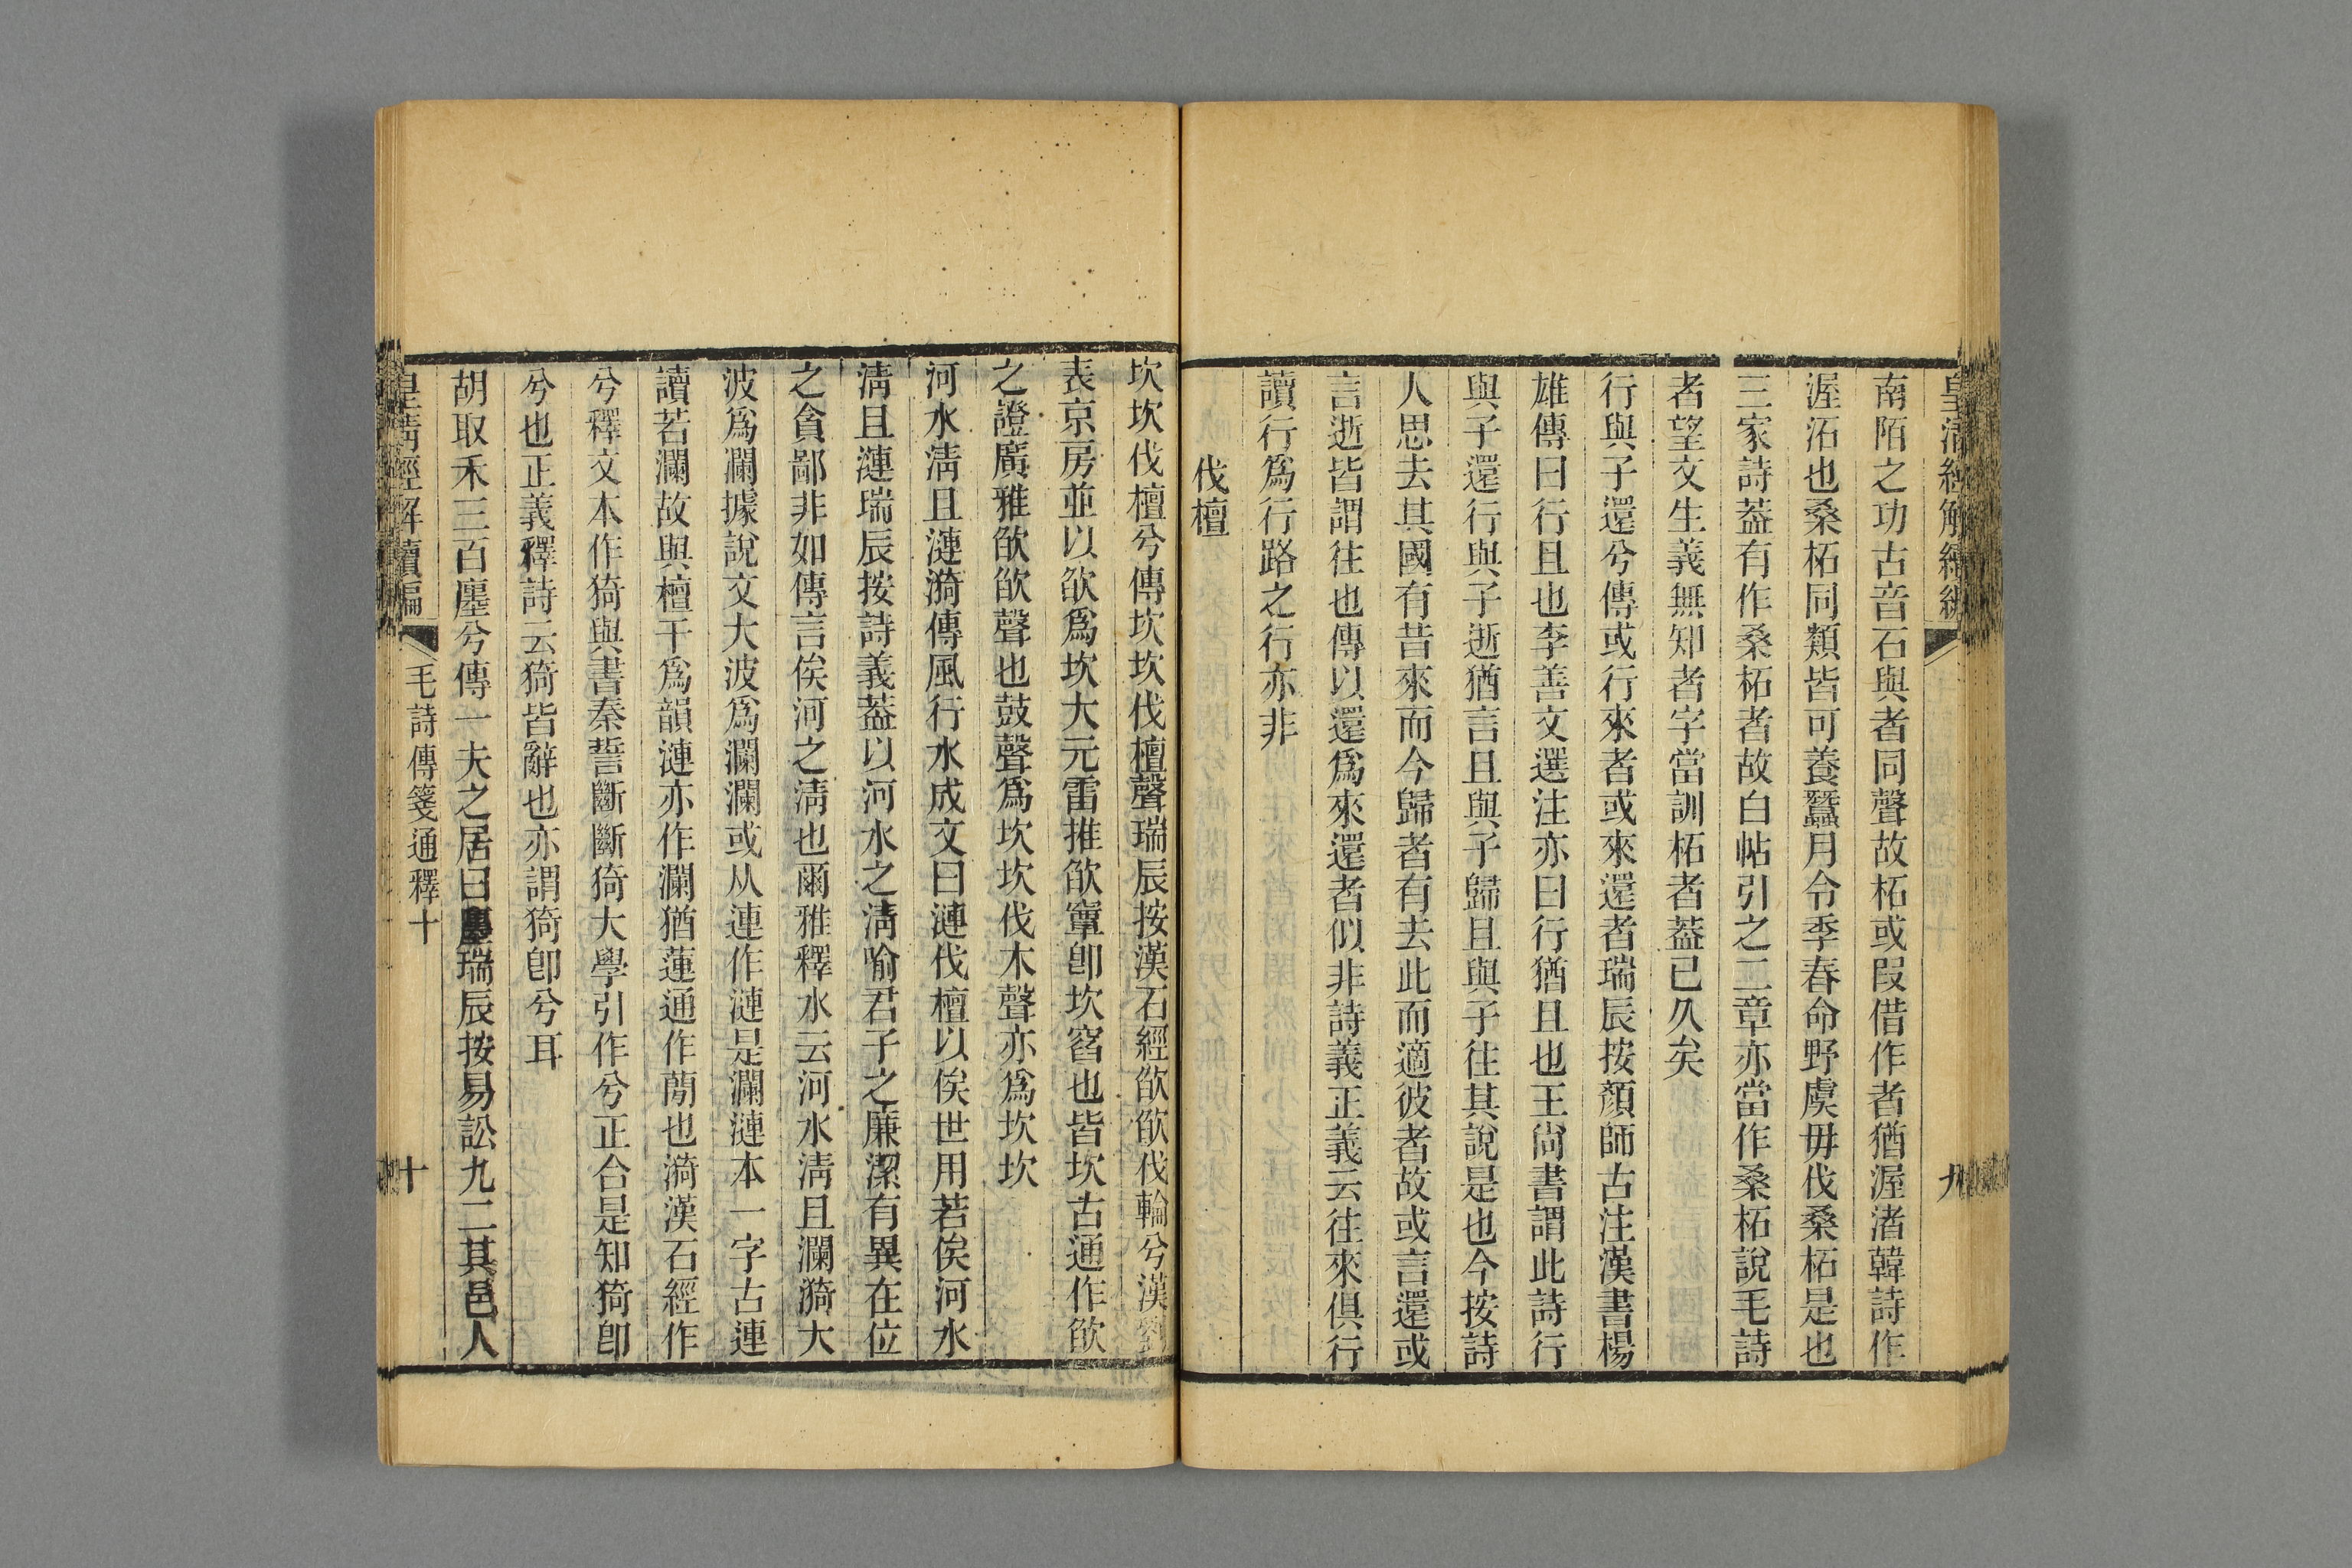 皇清經解續編
九
南陌之功古音石與者同聲故柘或叚借作者猶渥渚韓詩作
渥沰也桑柘同類皆可養蠶月令季春命野虞毋伐桑柘是也
三家詩蓋有作桑柘者故白帖引之二章亦當作桑柘說毛詩
者望文生義無知者字當訓柘者蓋已久矣
行與子還兮傳或行來者或來還者瑞辰按顏師古注漢書楊
雄傳曰行且也李善文選注亦曰行猶且也王尙書謂此詩行
與子還行與子逝猶言且與子歸且與子往其說是也今按詩
人思去其國有昔來而今歸者有去此而適彼者故或言還或
言逝皆謂往也傳以還爲來還者似非詩義正義云往來俱行
讀行爲行路之行亦非
伐檀
坎坎伐檀兮傳坎坎伐檀聲瑞辰按漢石經欿欿伐輪兮漢劉
表京房並以欿爲坎大元雷推欿窞卽坎窞也皆坎古通作欿
之證廣雅欿欿聲也鼓聲爲坎坎伐木聲亦爲坎坎
河水淸且漣漪傳風行水成文曰漣伐檀以俟世用若俟河水
淸且漣瑞辰按詩義蓋以河水之淸喻君子之廉潔有異在位
之貪鄙非如傳言俟河之淸也爾雅釋水云河水淸且瀾漪大
波爲瀾據說文大波爲瀾瀾或从連作漣是瀾漣本一字古連
讀若瀾故與檀干爲韻漣亦作瀾猶蓮通作蕑也漪漢石經作
兮釋文本作猗與書秦誓斷斷猗大學引作兮正合是知猗卽
兮也正義釋詩云猗皆辭也亦謂猗卽兮耳
胡取禾三百廛兮傳一夫之居曰廛瑞辰按易訟九二其邑人
皇淸經解續編
毛詩傳箋通釋十
十